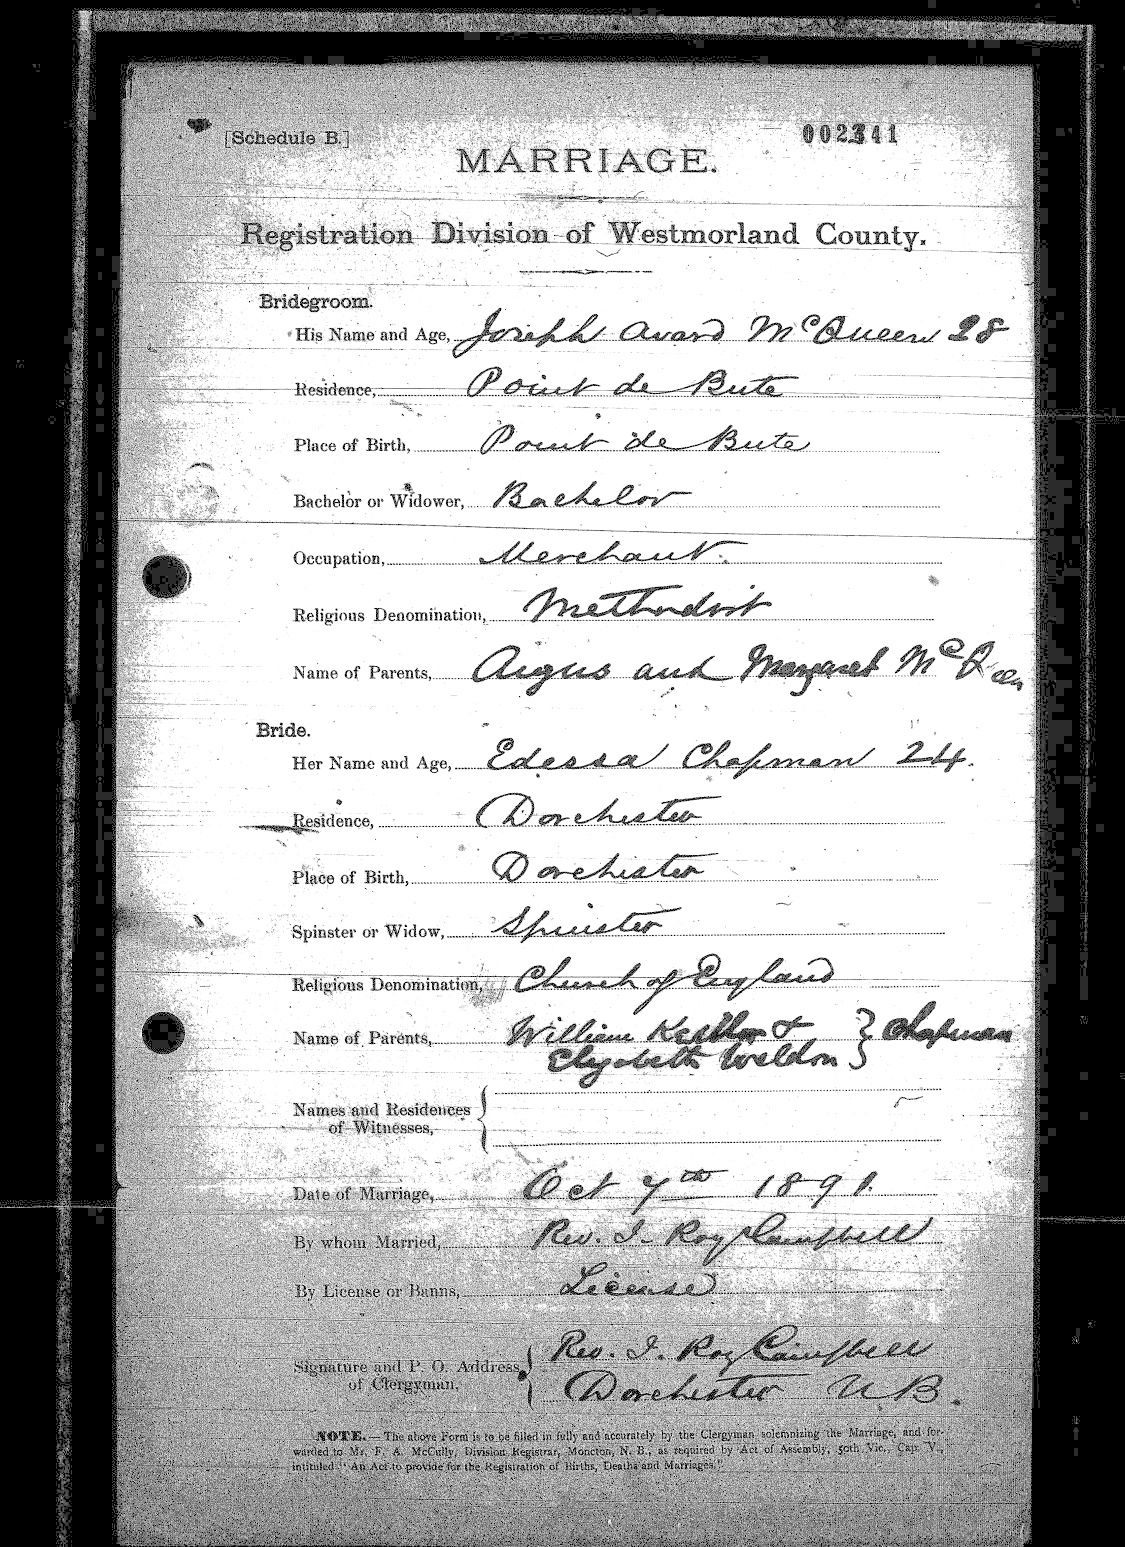 [Schedule B.]
002341
MARRIAGE.
Registration Division of Westmorland County.
Bridegroom.
His Name and Age, Joseph Avard McQueen 28
Residence, Point de Bute
Place of Birth, Point de Bute
Bachelor or Widower, Bachelor
Occupation, Merchant.
Religious Denomination, Methodist
Name of Parents, Angus and Margaret McQueen
Bride.
Her Name and Age, Edessa Chapman 24.
Residence, Dorchester
Place of Birth, Dorchester
Spinster or Widow, Spinster
Religious Denomination, Church of England
Name of Parents, William & } Chapman
Elizabeth Weldon
Names and Residences
of Witnesses,
Date of Marriage, Oct 7th 1891.
By whom Married, Rev. J. Roy Campbell
By License or Banns, License
Signature and P. O. Address Rev. J. Roy Campbell
of Clergyman, Dorchester N B.
NOTE.—The above Form is to be filled in fully and accurately by the Clergyman solemnizing the Marriage, and for-
warded to Mr. F. A. McCully, Division Registrar, Moncton, N. B., as required by Act of Assembly, 50th Vic., Cap. V.,
intituled "An Act to provide for the Registration of Births, Deaths and Marriages."